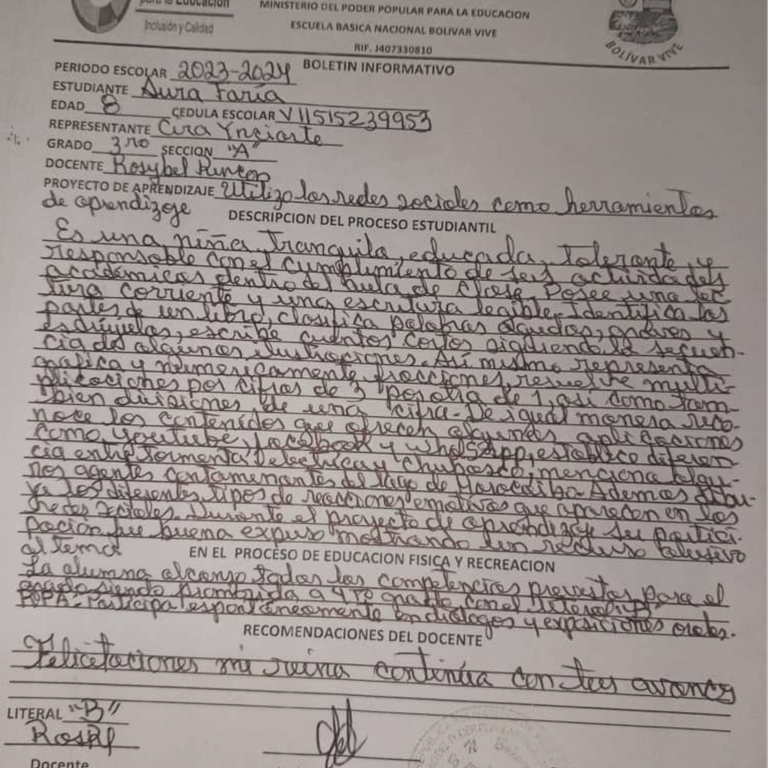 para la Educación
Inclusión y Calidad
MINISTERIO DEL PODER POPULAR PARA LA EDUCACION
ESCUELA BASICA NACIONAL BOLIVAR VIVE
RIF. J407330810
BOLÍVAR VIVE
BOLETIN INFORMATIVO
PERIODO ESCOLAR 2023-2024
ESTUDIANTE Aura Faría
EDAD 8 CEDULA ESCOLAR V11515239953
REPRESENTANTE Cira Ynciarte
GRADO 3ro SECCION "A"
DOCENTE Rosybel Rincon
PROYECTO DE APRENDIZAJE Utilizo las redes sociales como herramientas
de aprendizaje
DESCRIPCION DEL PROCESO ESTUDIANTIL
Es una niña tranquila, educada, tolerante y
responsable con el cumplimiento de sus actividades
académicas dentro del aula de clase. Posee una lec-
tura corriente y una escritura legible. Identifica las
partes de un libro, clasifica palabras agudas, graves y
esdrújulas, escribe cuentos cortos siguiendo la secuen-
cia de algunas ilustraciones. Así mismo representa
gráfica y numéricamente fracciones, resuelve multi-
plicaciones por cifras de 3 por otra de 1, así como tam-
bien divisiones de una cifra. De igual manera reco-
noce los contenidos que ofrecen algunas aplicaciones
como youtube, facebook y whatsapp, establece diferen-
cia entre tormenta eléctrica y chubasco, menciona algu-
nos agentes contaminantes del lago de Maracaibo. Ademas dibu-
ja los diferentes tipos de reacciones emotivas que aparecen en las
redes sociales. Durante el proyecto de aprendizaje su partici-
pación fue buena expuso mostrando un recurso alusivo
al tema
EN EL PROCESO DE EDUCACION FISICA Y RECREACION
La alumna alcanso todas las competencias previstas para el
grado siendo promovida a 4to grado con el literal "B".
Participa espontáneamente en diálogos y exposiciones orales.
RECOMENDACIONES DEL DOCENTE
Felicitaciones mi reina continúa con tus avances
LITERAL "B"
Docente